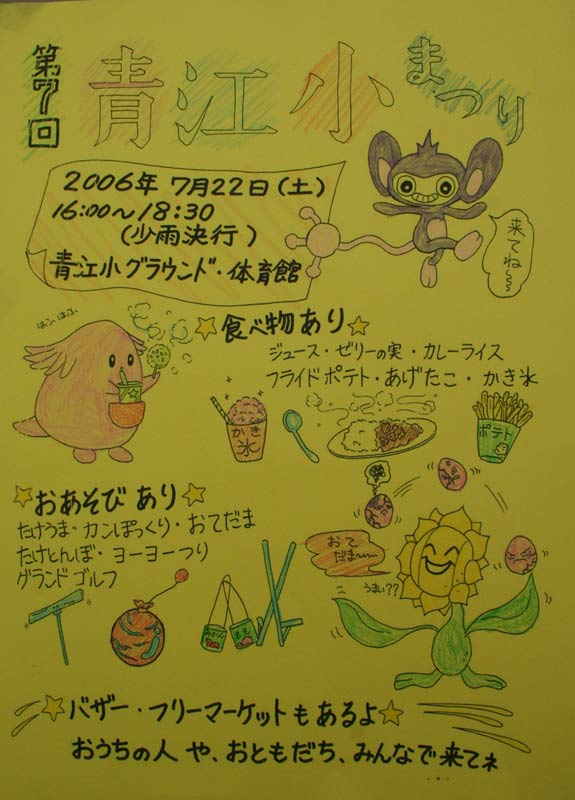 第7回
青江小まつり
2006年 7月22日(土)
16:00〜18:30
(少雨決行)
青江小グラウンド・体育館
来てね〜〜
はふはふ
☆食べ物あり☆
ジュース・ゼリーの実・カレーライス
フライドポテト・あげたこ・かき氷
かき氷
ポテト
☆おあそびあり☆
たけうま・カンぽっくり・おてだま
たけとんぼ・ヨーヨーつり
グランドゴルフ
おてだま〜
うまい??
みかん
もも
☆バザー・フリーマーケットもあるよ☆
おうちの人や、おともだち、みんなで来てネ